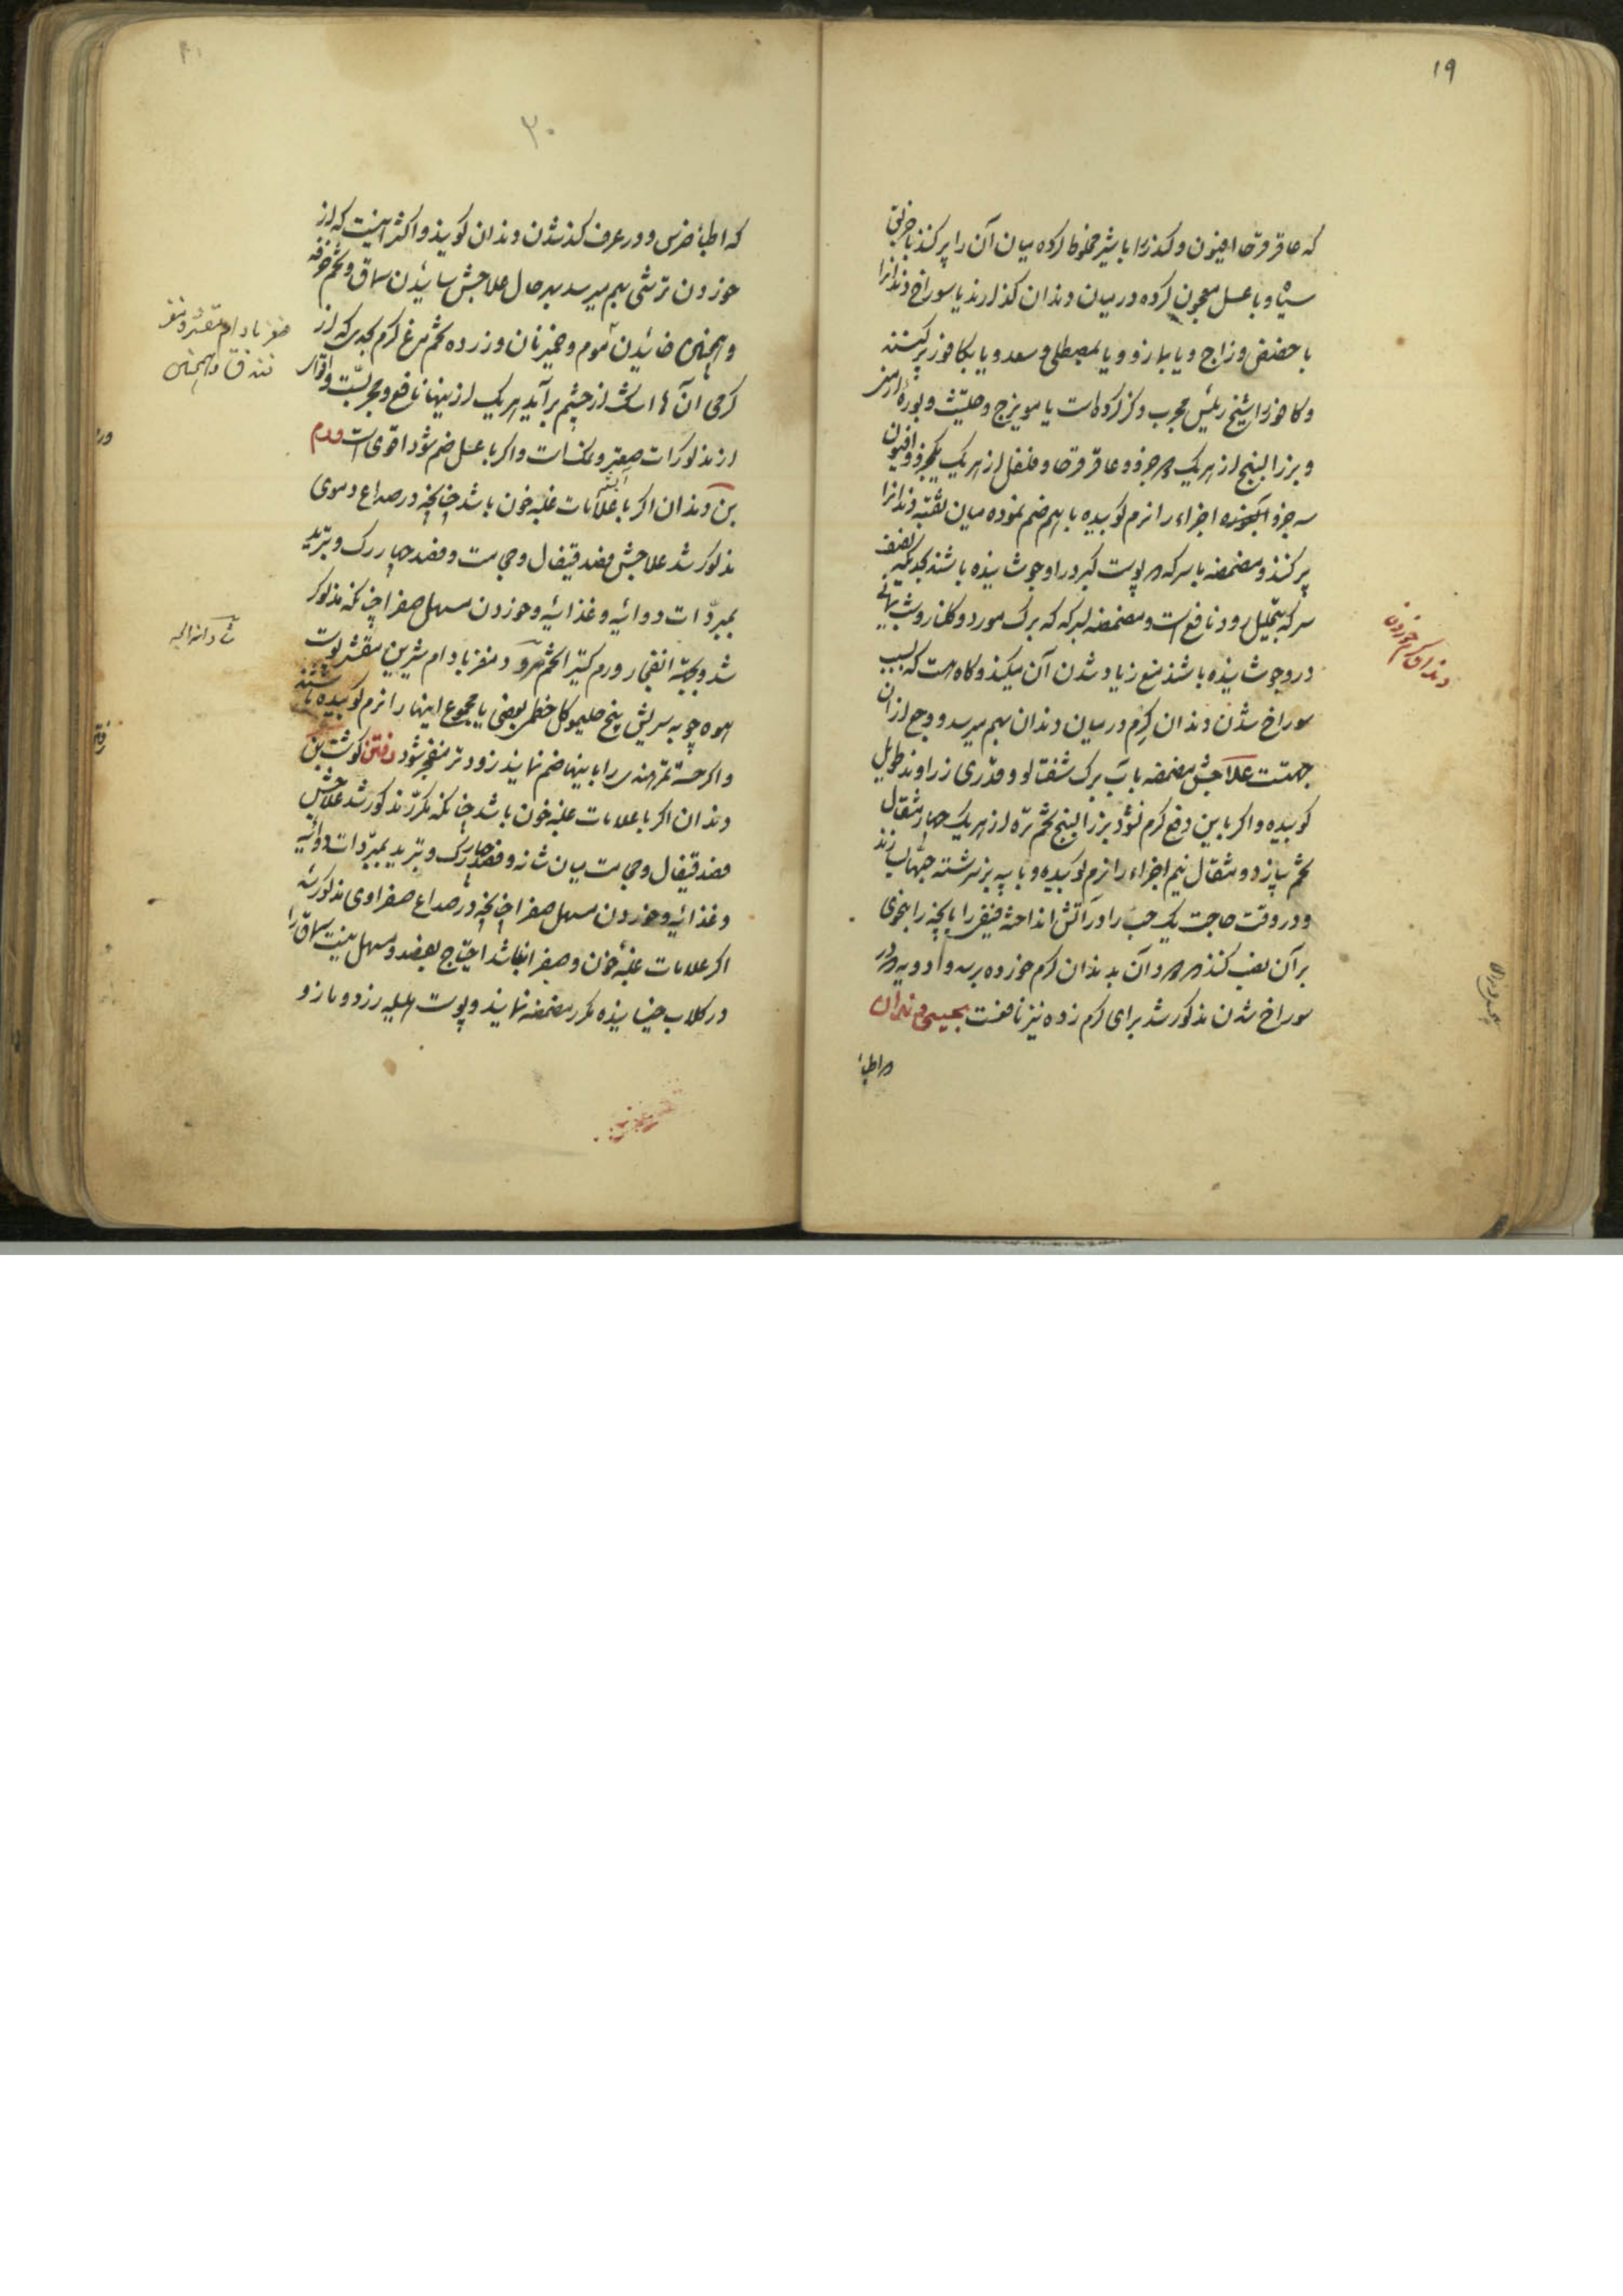 ۱۹
که عاقرقرحا افیون و کندر را با شیر مخلوط کرده میان آن را پر کنند یا خربق
سیاه و با عسل معجون کرده در میان دندان گذارند یا سوراخ دندانرا
با حضض و زاج و یا بمازو و یا بمصطکی و سعد و یا بکافور پر کنند
و کافور را شیخ رئیس مجرب ذکر کرده است یا مویزج و حلتیت و بوره ارمنی
و بزر البنج از هر یک دو جزو و عاقرقرحا و فلفل از هر یک یکجزو و افیون
سه جزو اجزاء را نرم کوبیده با هم ضم نموده میان ثقبه دندانرا
پر کنند و مضمضه با سرکه که پوست کبر در او جوشانیده باشند بحدیکه نصف
سرکه بتحلیل رود نافع است و مضمضه بسرکه که برک مورد و کلنار و شب یمانی
در وجوشانیده باشند منع زیاد شدن آن میکند و کاه هست که بسبب
سوراخ شدن دندان کرم در میان دندان بهم میرسد و وجع از آن
جهتست علاجش مضمضه بآب برک شفتالو و قدری زراوند طویل
کوبیده و اکر باین دفع کرم نشود بزر البنج تخم تره از هر یک چهار مثقال
تخم پیاز دو مثقال نیم اجزاء را نرم کوبیده و با پیه بز سرشته حبها سازند
و در وقت حاجت یک حب را در آتش انداخته قیفی را بانچه را بنحوی
بر آن نصب کنند که دود آن بدندان کرم خورده برسد و ادویه که در
سوراخ شدن مذکور شد برای کرم زده نیز نافعست بحسی دندان
که اطبا
دندان کرم خورده
۲۰
که اطبا ضرس و در عرف کند شدن دندان کویند و اکثر اینست که از
خوردن ترشی بهم میرسد بهر حال علاجش سائیدن سماق و تخم خرفه
و همچنین خائیدن موم و خمیر نان و زرده تخم مرغ کرم بحدیکه از
کرمی آنها اشک از چشم برآید هر یک از اینها نافع و مجربست و اقوی
از مذکورات صعتر و نمک است و اکر با عسل ضم شود اقوی است ورم
بن دندان اکر با علامات غلبه خون باشد چنانچه در صداع دموی
مذکور شد علاجش فصد قیفال و حجامت و فصد چهار رک و تبرید
بمبردات دوائیه و غذائیه و خوردن مسهل صفرا چنانکه مذکور
شد و بجهة انفجار ورم کتیرا تخم مرو و مغز بادام شیرین مقشر پوست
انبوه چوبه سریش پنج حلیمو کل خطمی بعضی یا مجموع اینها را نرم کوبیده باشند
و اکر خسته تمر هندی را با اینها ضم نمایند زودتر منفجر شود رفتن کوشت بن
دندان اکر با علامات غلبه خون باشد چنانکه مکرر مذکور شد علاجش
فصد قیفال و حجامت میان شانه و فصد چهار رک و تبرید بمبردات دوائیه
و غذائیه و خوردن مسهل صفرا چنانچه در صداع صفراوی مذکور شد
اکر علامات غلبه خون و صفرا نباشد احتیاج بفصد و مسهل نیست سماق را
در کلاب خیسانیده مکرر مضمضه نمایند و پوست هلیله زرد و مازو
مغز بادام مقشر و مغز
فندق و همچنین